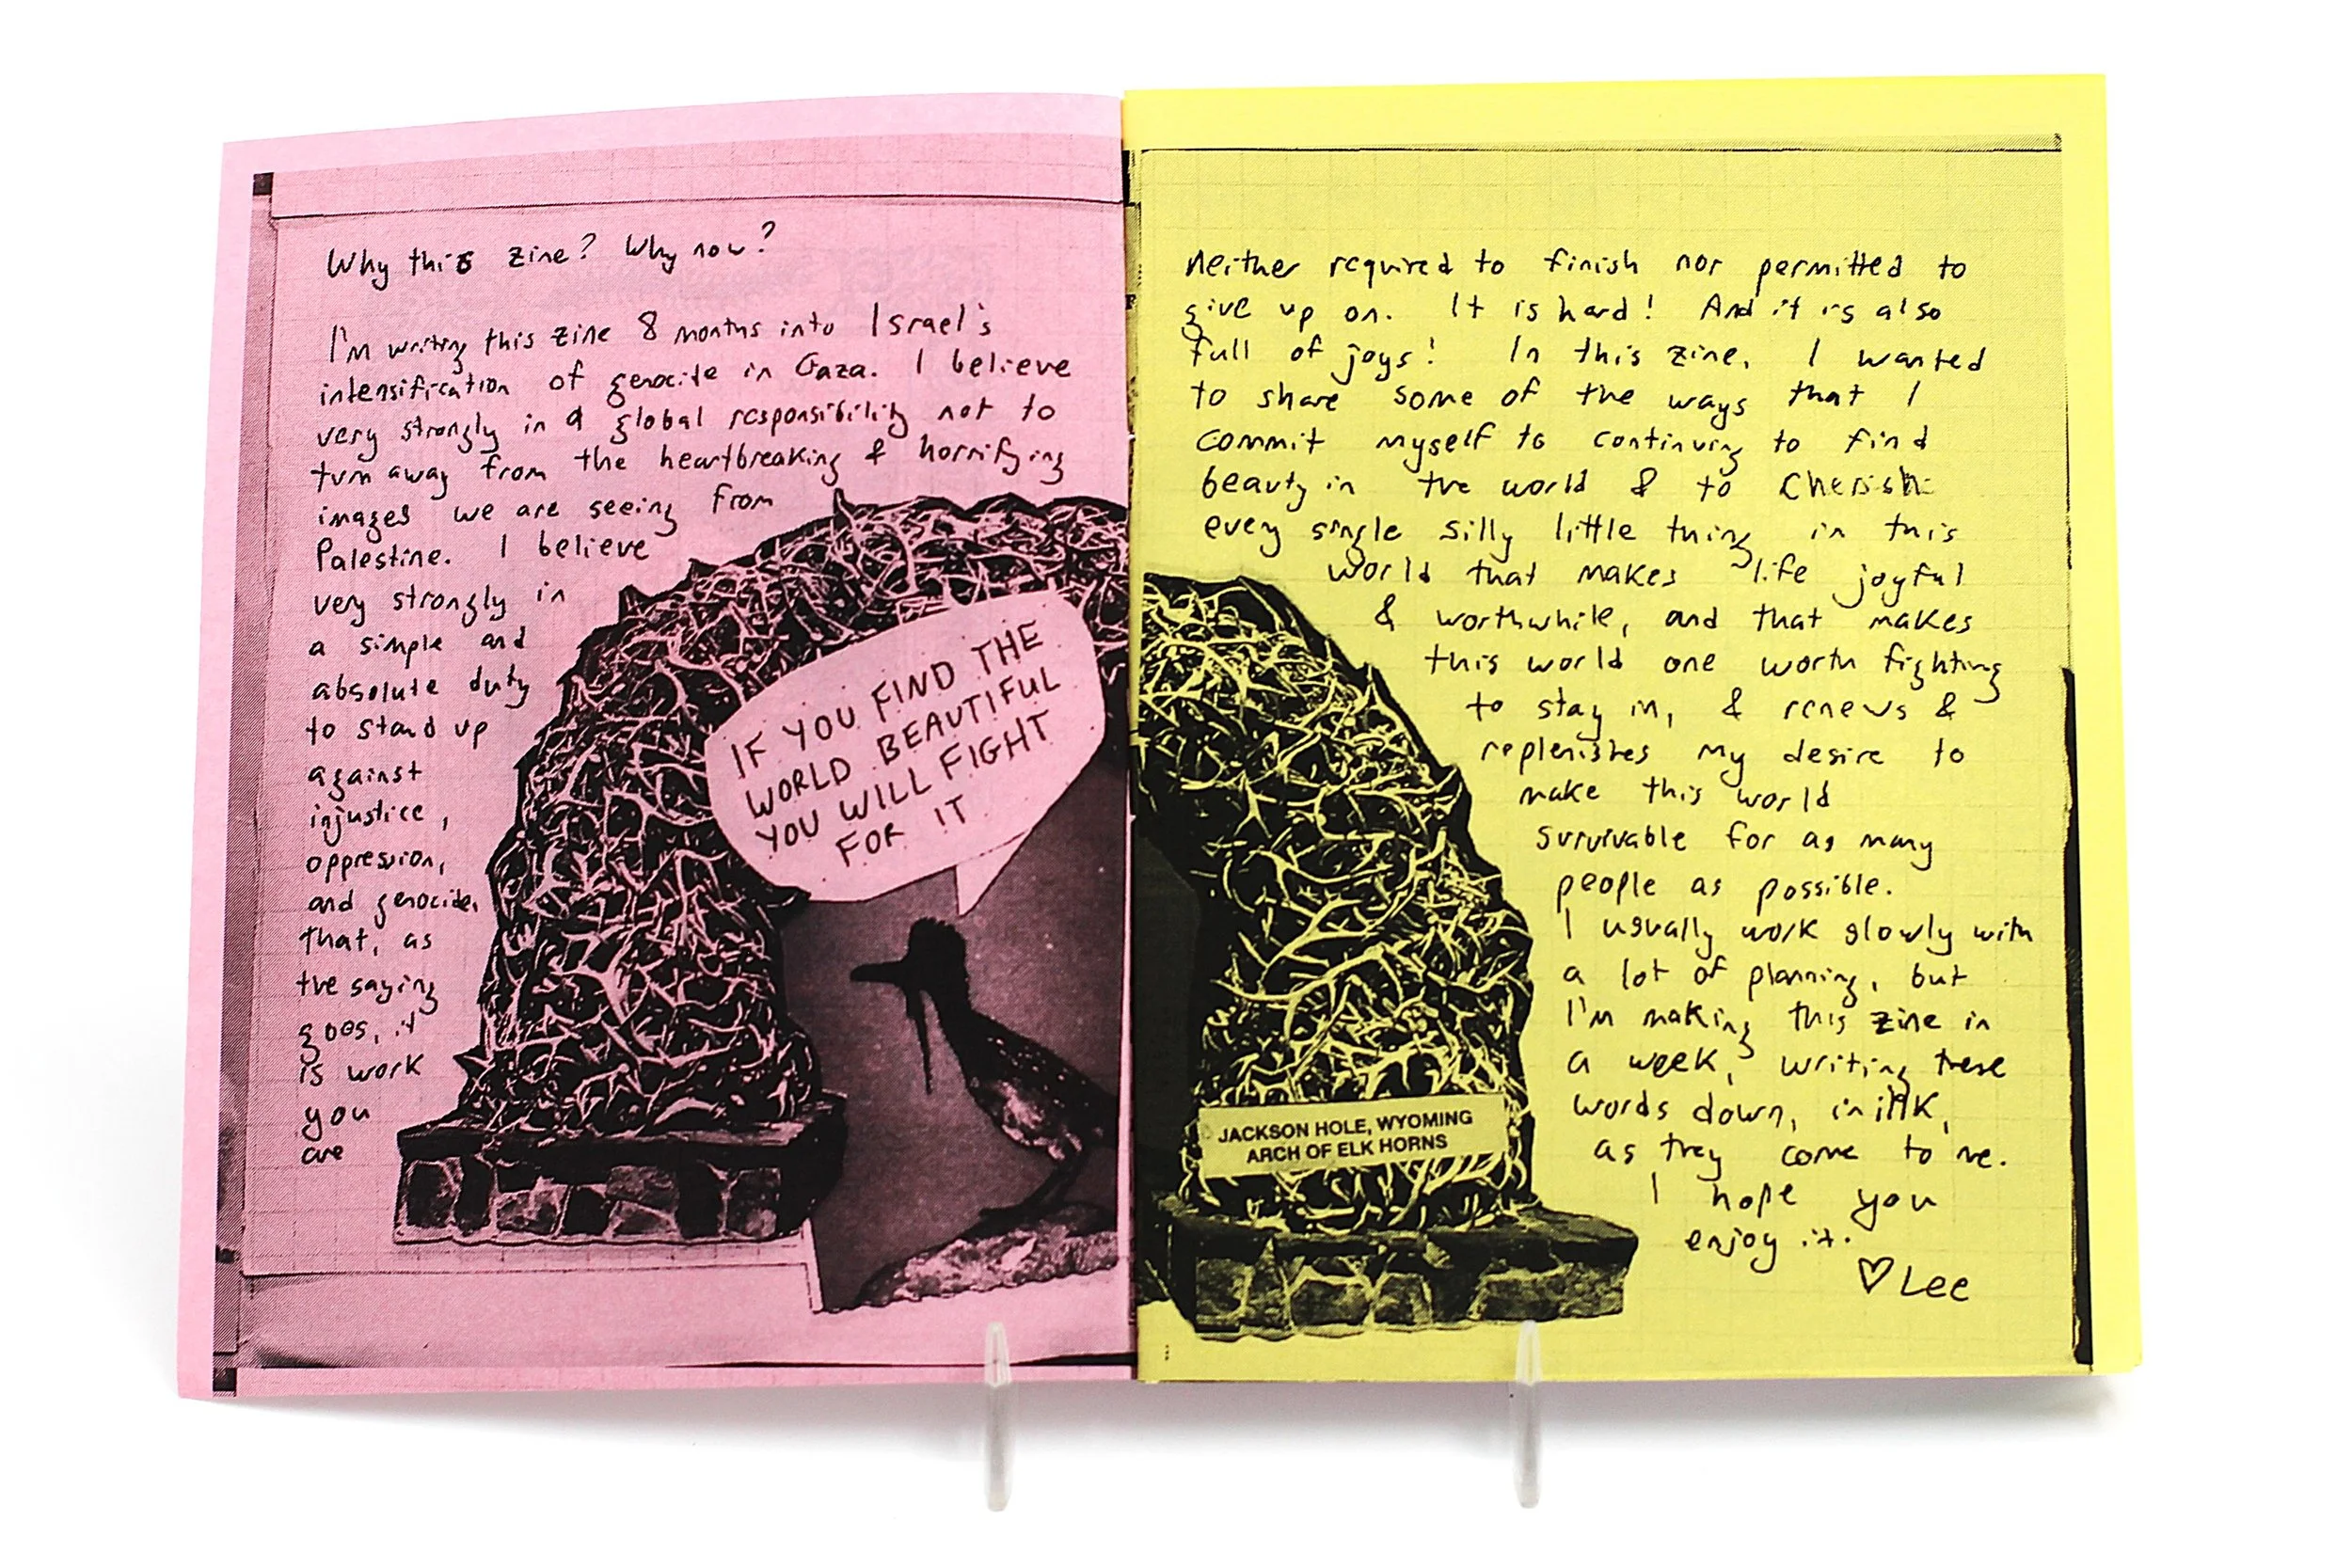 Why this zine? Why now?
I'm writing this zine 8 months into Israel's
intensification of genocide in Gaza. I believe
very strongly in a global responsibility not to
turn away from the heartbreaking & horrifying
images we are seeing from
Palestine. I believe
very strongly in
a simple and
absolute duty
to stand up
against
injustice,
oppression,
and genocide,
that, as
the saying
goes, it
is work
you
are
IF YOU FIND THE
WORLD BEAUTIFUL
YOU WILL FIGHT
FOR IT
neither required to finish nor permitted to
give up on. It is hard! And it is also
full of joys! In this zine, I wanted
to share some of the ways that I
commit myself to continuing to find
beauty in the world & to cherish
every single silly little thing in this
world that makes life joyful
& worthwhile, and that makes
this world one worth fighting
to stay in, & renews &
replenishes my desire to
make this world
survivable for as many
people as possible.
I usually work slowly with
a lot of planning, but
I'm making this zine in
a week, writing these
words down, in ink,
as they come to me.
I hope you
enjoy it.
♡ Lee
JACKSON HOLE, WYOMING
ARCH OF ELK HORNS